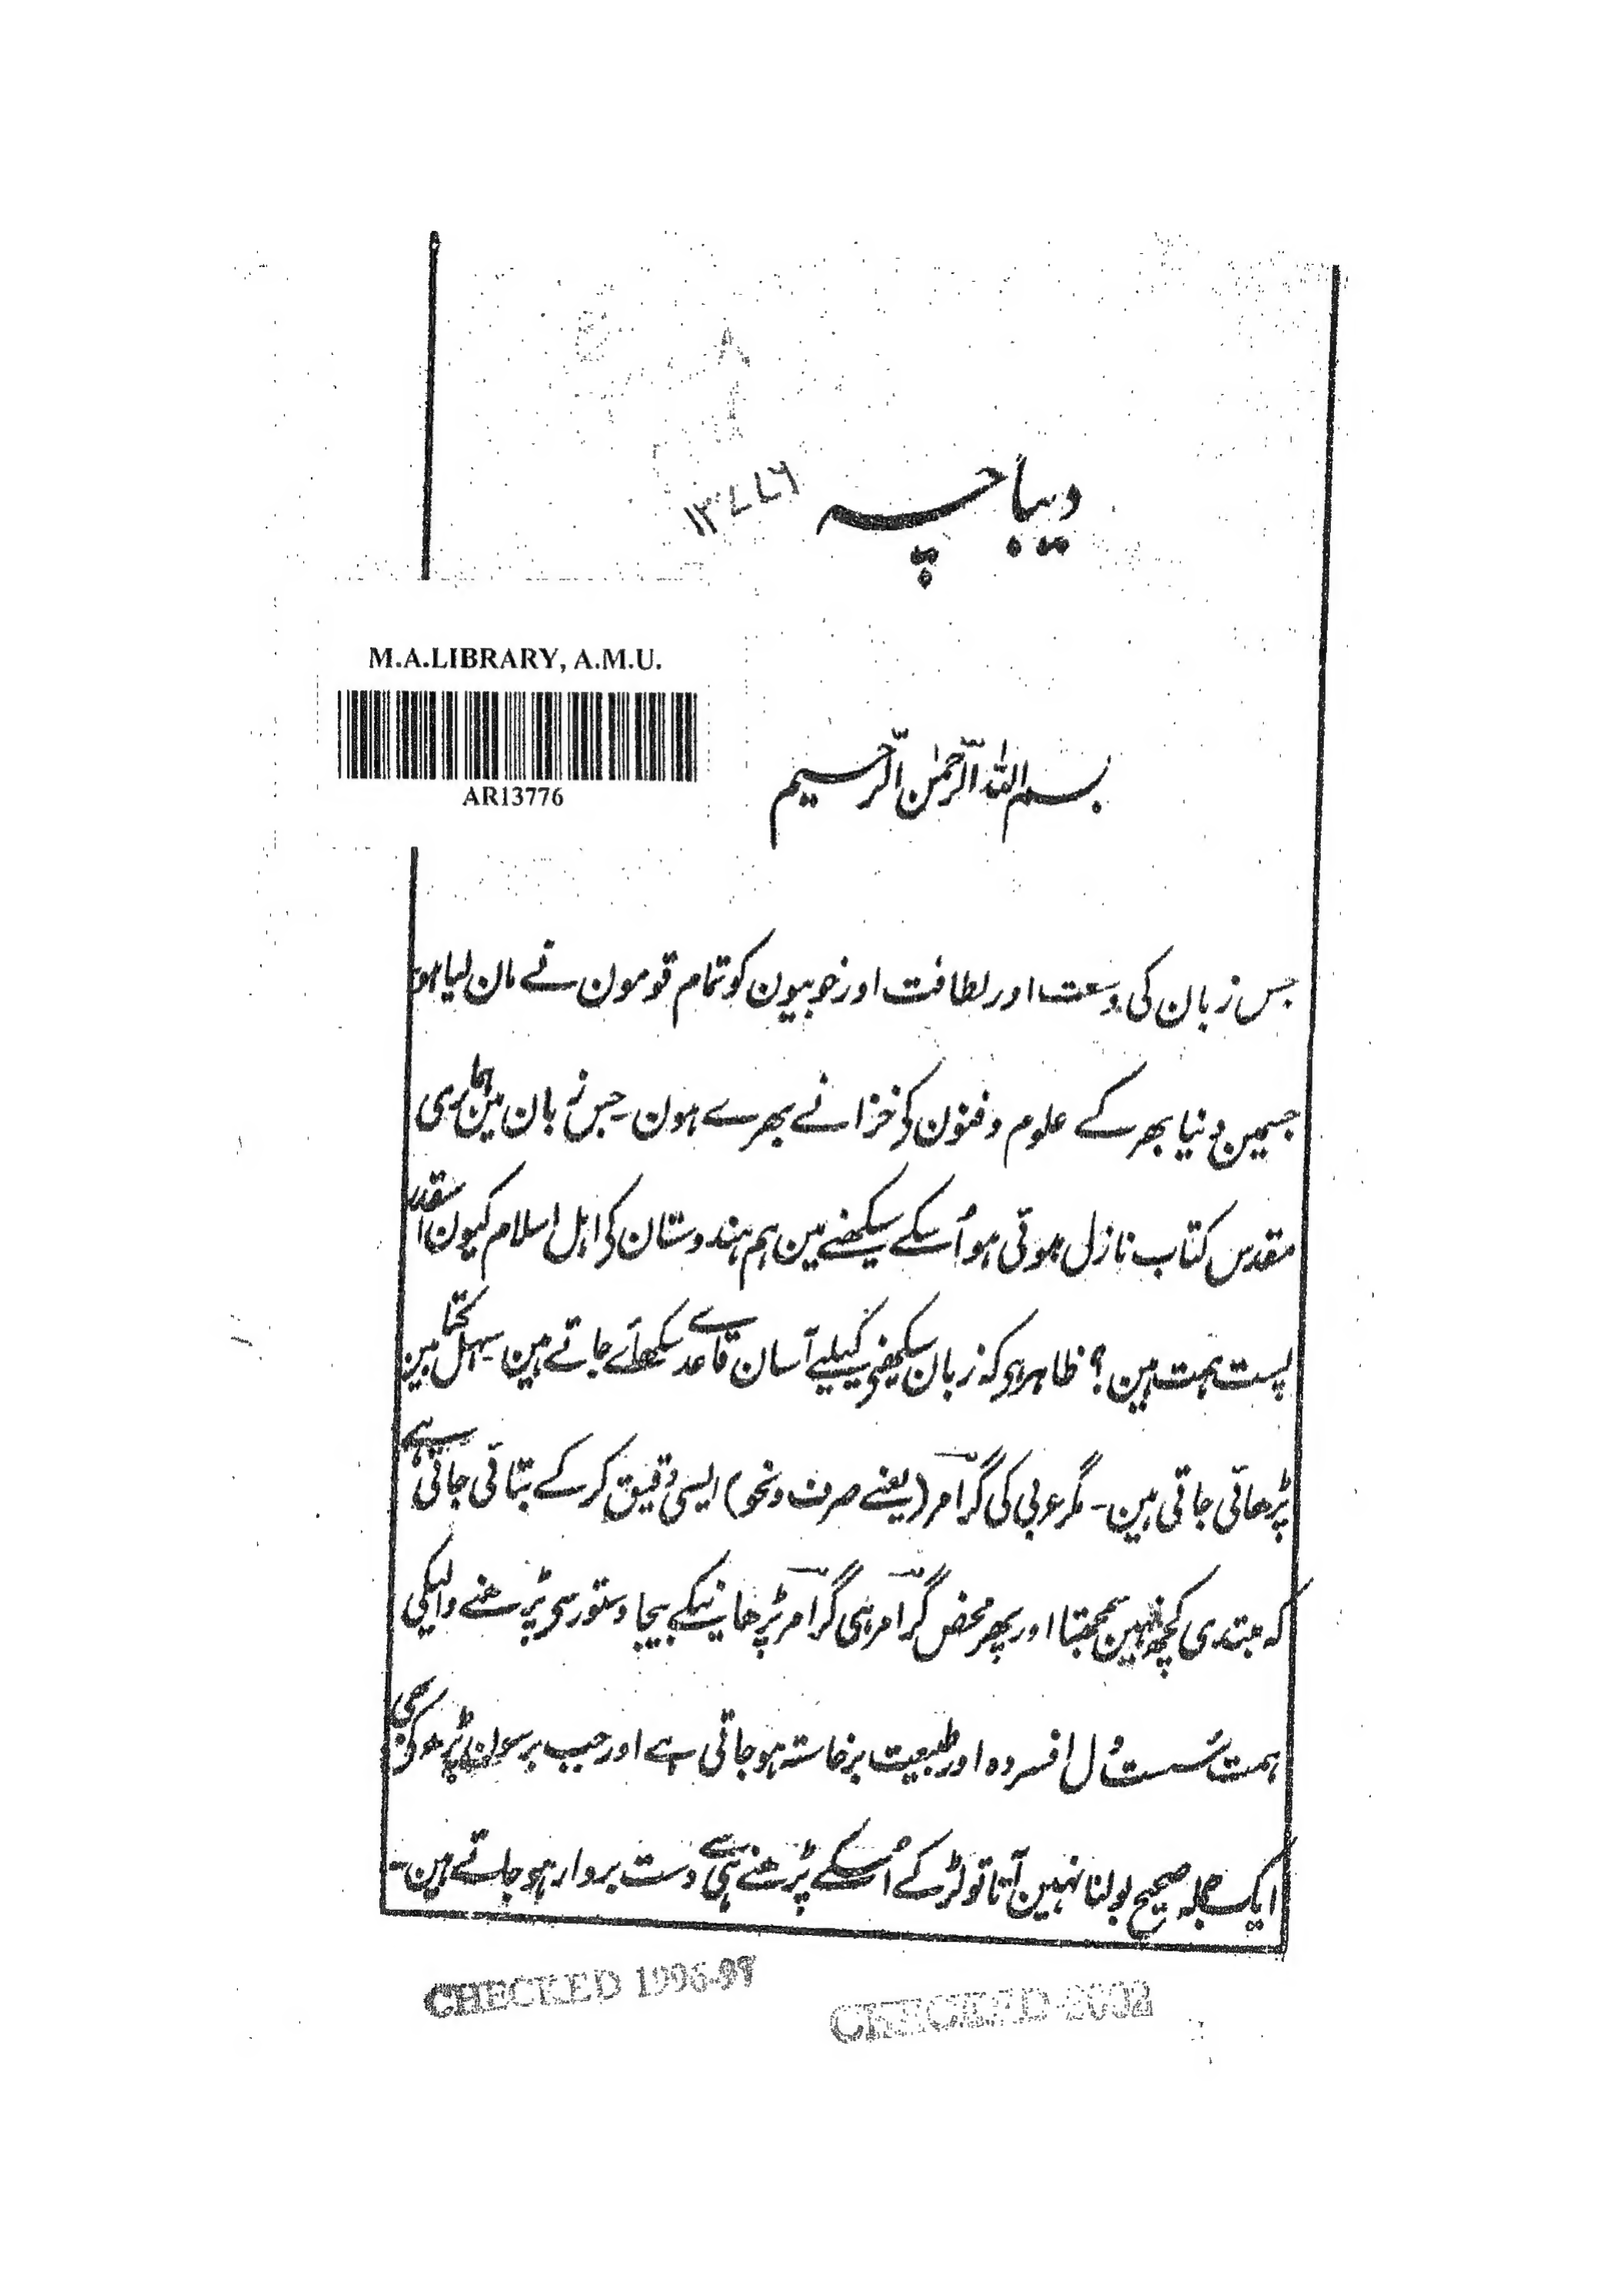 دیباچہ
۱۳۷۷۶
M.A.LIBRARY, A.M.U.
AR13776
بسم اللہ الرّحمٰن الرّحیم
جس زبان کی وسعت اور لطافت اور خوبیون کو تمام قومون نے مان لیا ہو
جسمین دنیا بھر کے علوم و فنون کے خزانے بھرے ہون۔ جس زبان مین ہماری
مقدس کتاب نازل ہوئی ہو اُسکے سیکھنے مین ہم ہندوستان کے اہل اسلام کیون اسقدر
پست ہمت ہین؟ ظاہر ہو کہ زبان سیکھنے کیلیے آسان قاعدے سکھائے جاتے ہین۔ سہل کتابین
پڑھائی جاتی ہین۔ مگر عربی کی گرامر (یعنے صرف و نحو) ایسی دقیق کر کے بتائی جاتی ہے
کہ مبتدی کچھ نہین سمجھتا اور پھر محض گرامر ہی گرامر پڑھانیکے بیجا دستور سے پڑھنے والیکی
ہمت سُست دل افسردہ اور طبیعت برخاستہ ہو جاتی ہے اور جب برسون پڑھ کے بھی
ایک جملہ صحیح بولنا نہین آتا تو لڑکے اُسکے پڑھنے ہی سے دست بردار ہو جاتے ہین۔
CHECKED 1996-97
CHECKED 2002